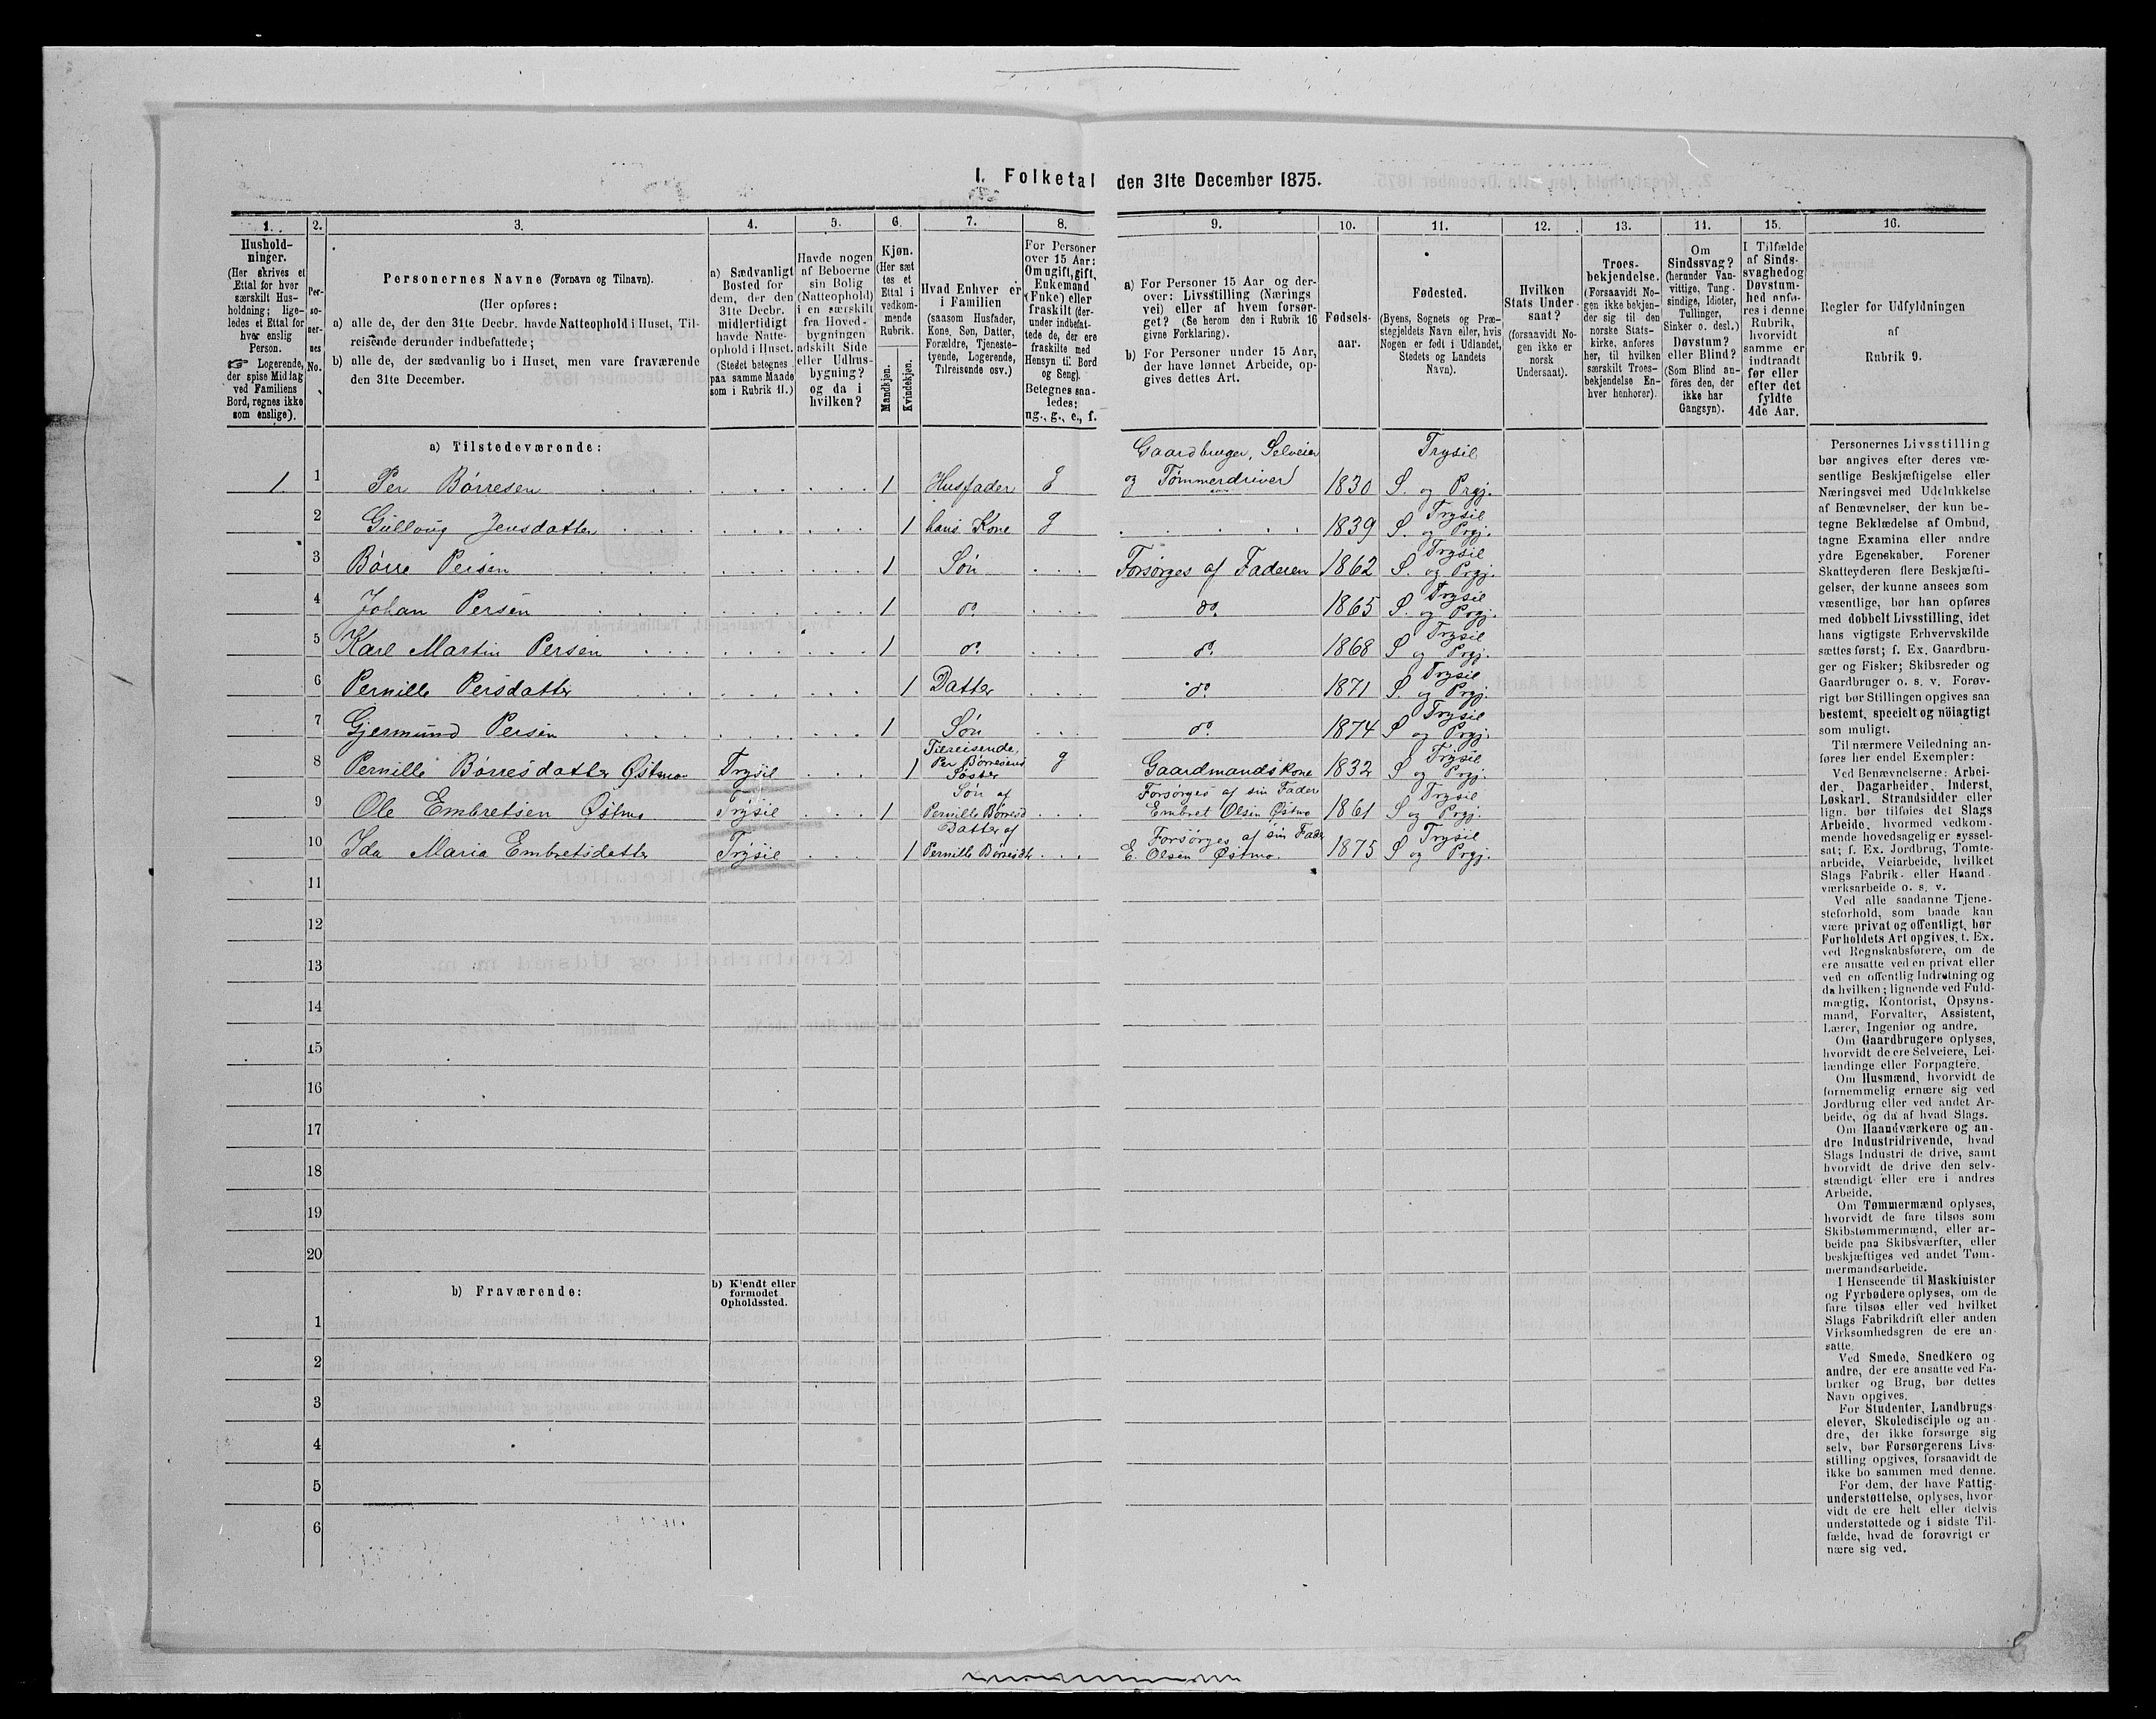 I. Folketal den 31te December 1875.
1. 2. 3. 4. 5. 6. 7. 8. 9. 10. 11. 12. 13. 14. 15. 16.
Hushold-
ninger.
(Her skrives et
Ettal for hver
særskilt Hus-
holdning; lige-
ledes et Ettal for
hver enslig
Person.
☞ Logerende,
der spise Middag
ved Familiens
Bord, regnes ikke
som enslige).
Per-
so-
ner-
nes
No.
Personernes Navne (Fornavn og Tilnavn).
(Her opføres:
a) alle de, der den 31te Decbr. havde Natteophold i Huset, Til-
reisende derunder indbefattede;
b) alle de, der sædvanlig bo i Huset, men vare fraværende
den 31te December.
a) Sædvanligt
Bosted for
dem, der den
31te Decbr.
midlertidigt
havde Natte-
ophold i Huset.
(Stedet betegnes
paa samme Maade
som i Rubrik 11.)
Havde nogen
af Beboerne
sin Bolig
(Natteophold)
i en særskilt
fra Hoved-
bygningen
adskilt Side
eller Udhus-
bygning?
og da i
hvilken?
Kjøn.
(Her sæt
tes et
Ettal i
vedkom-
mende
Rubrik.
Mandkjøn.
Kvindekjøn.
Hvad Enhver er
i Familien
(saasom Husfader,
Kone, Søn, Datter,
Forældre, Tjeneste-
tyende, Logerende,
Tilreisende osv.)
For Personer
over 15 Aar:
Om ugift, gift,
Enkemand
(Enke) eller
fraskilt (der-
under indbefat-
tede de, der ere
fraskilte med
Hensyn til Bord
og Seng).
Betegnes saa-
ledes:
ug., g., e., f.
a) For Personer 15 Aar og der-
over: Livsstilling (Nærings
vei) eller af hvem forsør-
get? (Se herom den i Rubrik 16
givne Forklaring).
b) For Personer under 15 Aar,
der have lønnet Arbeide, op-
gives dettes Art.
Fødsels-
aar.
Fødested.
(Byens, Sognets og Præ-
stegjeldets Navn eller, hvis
Nogen er født i Udlandet,
Stedets og Landets
Navn).
Hvilken
Stats Under-
saat?
(forsaavidt No-
gen ikke er
norsk
Undersaat).
Troes-
bekjendelse.
(Forsaavidt No-
gen ikke bekjen-
der sig til den
norske Stats-
kirke, anføres
her, til hvilken
særskilt Troes-
bekjendelse En-
hver henhører).
Om
Sindssvag?
(herunder Van-
vittige, Tung-
sindige, Idioter,
Tullinger,
Sinker o. desl.)
Døvstum?
eller Blind?
(Som Blind an-
føres den, der
ikke har
Gangsyn).
I Tilfælde
af Sinds-
svaghed og
Døvstum-
hed anfø-
res i denne
Rubrik,
hvorvidt
samme er
indtraadt
før eller
efter det
fyldte
4de Aar.
Regler for Udfyldningen
af
Rubrik 9.
a) Tilstedeværende:
Gaardbruger, Selveier Trysil
1 1 Per Børresen 1 Husfader g og Tømmerdriver 1830 S. og Prgj.
Trysil
2 Gulloug Jensdatter 1 hans Kone g 1839 S. og Prgj.
Trysil
3 Børre Persen 1 Søn Forsørges af Faderen 1862 S. og Prgj.
Trysil
4 Johan Persen 1 do. do. 1865 S. og Prgj.
Trysil
5 Karl Martin Persen 1 do. do. 1868 S og Prgj.
Trysil
6 Pernille Persdatter 1 Datter do. 1871 S. og Prgj.
Trysil
7 Gjermund Persen 1 Søn do. 1874 S og Prgj.
Tilreisende, Trysil
8 Pernille Børresdatter Østmo Trysil 1 Per Børresens Søster g Gaardmandskone 1832 S og Prgj.
Søn af Forsørges af sin Fader Trysil
9 Ole Embretsen Østmo Trysil 1 Pernille Børresd Embret Olsen Østmo 1861 S og Prgj.
Datter af Forsørges af sin Fader Trysil
10 Ida Maria Embretsdatter Trysil 1 Pernille Børresdt E. Olsen Østmo. 1875 S og Prgj.
11
12
13
14
15
16
17
18
19
20
b) Fraværende:
b) Kjendt eller
formodet
Opholdssted.
1
2
3
4
5
6
Personernes Livsstilling
bør angives efter deres væ-
sentlige Beskjæftigelse eller
Næringsvei med Udelukkelse
af Benævnelser, der kun be-
tegne Beklædelse af Ombud,
tagne Examina eller andre
ydre Egenskaber. Forener
Skatteyderen flere Beskjæfti-
gelser, der kunne ansees som
væsentlige, bør han opføres
med dobbelt Livsstilling, idet
hans vigtigste Erhvervskilde
sættes først; f. Ex. Gaardbru-
ger og Fisker; Skibsreder og
Gaardbruger o. s. v. Forøv-
rigt bør Stillingen opgives saa
bestemt, specielt og nøiagtigt
som muligt.
Til nærmere Veiledning an-
føres her endel Exempler:
Ved Benævnelserne: Arbei-
der, Dagarbeider, Inderst,
Løskarl, Strandsidder eller
lign. bør tilføies det Slags
Arbeide, hvormed vedkom-
mende hovedsagelig er syssel-
sat; f. Ex. Jordbrug, Tomte-
arbeide, Veiarbeide, hvilket
Slags Fabrik- eller Haand-
værksarbeide o. s. v.
Ved alle saadanne Tjene-
steforhold, som baade kan
være privat og offentligt, bør
Forholdets Art opgives, t. Ex.
ved Regnskabsførere, om de
ere ansatte ved en privat eller
ved en offentlig Indretning og
da hvilken; lignende ved Fuld-
mægtig, Kontorist, Opsyns-
mand, Forvalter, Assistent,
Lærer, Ingeniør og andre.
Om Gaardbrugere oplyses,
hvorvidt de ere Selveiere, Lei-
lændinge eller Forpagtere.
Om Husmænd, hvorvidt de
fornemmelig ernære sig ved
Jordbrug eller ved andet Ar-
beide, og da af hvad Slags.
Om Haandværkere og an-
dre Industridrivende, hvad
Slags Industri de drive, samt
hvorvidt de drive den selv-
stændigt eller ere i andres
Arbeide.
Om Tømmermænd oplyses,
hvorvidt de fare tilsøs som
Skibstømmermænd, eller ar-
beide paa Skibsværfter, eller
beskjæftiges ved andet Tøm-
mermandsarbeide.
I Henseende til Maskinister
og Fyrbødere oplyses, om de
fare tilsøs eller ved hvilket
Slags Fabrikdrift eller anden
Virksomhedsgren de ere an-
satte.
Ved Smede, Snedkere og
andre, der ere ansatte ved Fa-
briker og Brug, bør dettes
Navn opgives.
For Studenter, Landbrugs-
elever, Skoledisciple og an-
dre, der ikke forsørge sig
selv, bør Forsørgerens Livs-
stilling opgives, forsaavidt de
ikke bo sammen med denne.
For dem, der have Fattig-
understøttelse, oplyses, hvor-
vidt de ere helt eller delvis
understøttede og i sidste Til-
fælde, hvad de forøvrigt er
nære sig ved.